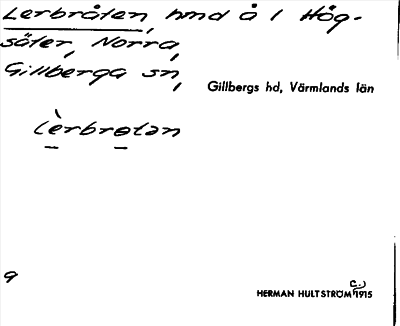 Lerbråten, hmd å 1 Hög-
säter, Norra,
Gillberga sn,
Gillbergs hd, Värmlands län
Lèrbrɵtən
9
HERMAN HULTSTRÖM c.) 1915